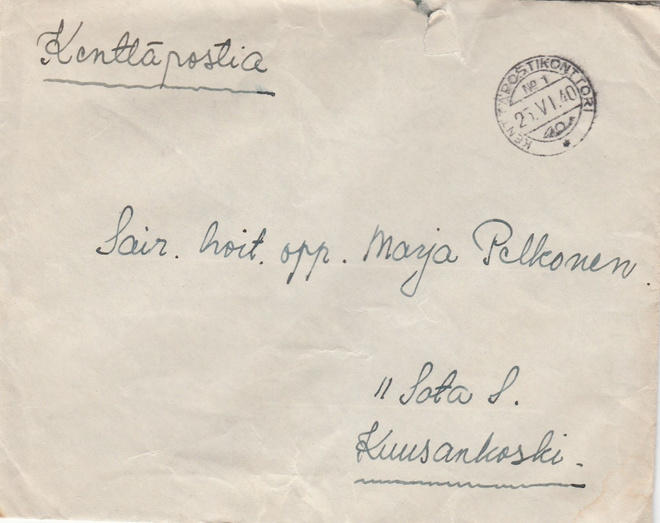 Kenttäpostia
KENTTÄPOSTIKONTTORI
No 1
25.VI.40
Sair. hoit. opp. Marja Pelkonen.
11 Sota S.
Kuusankoski.